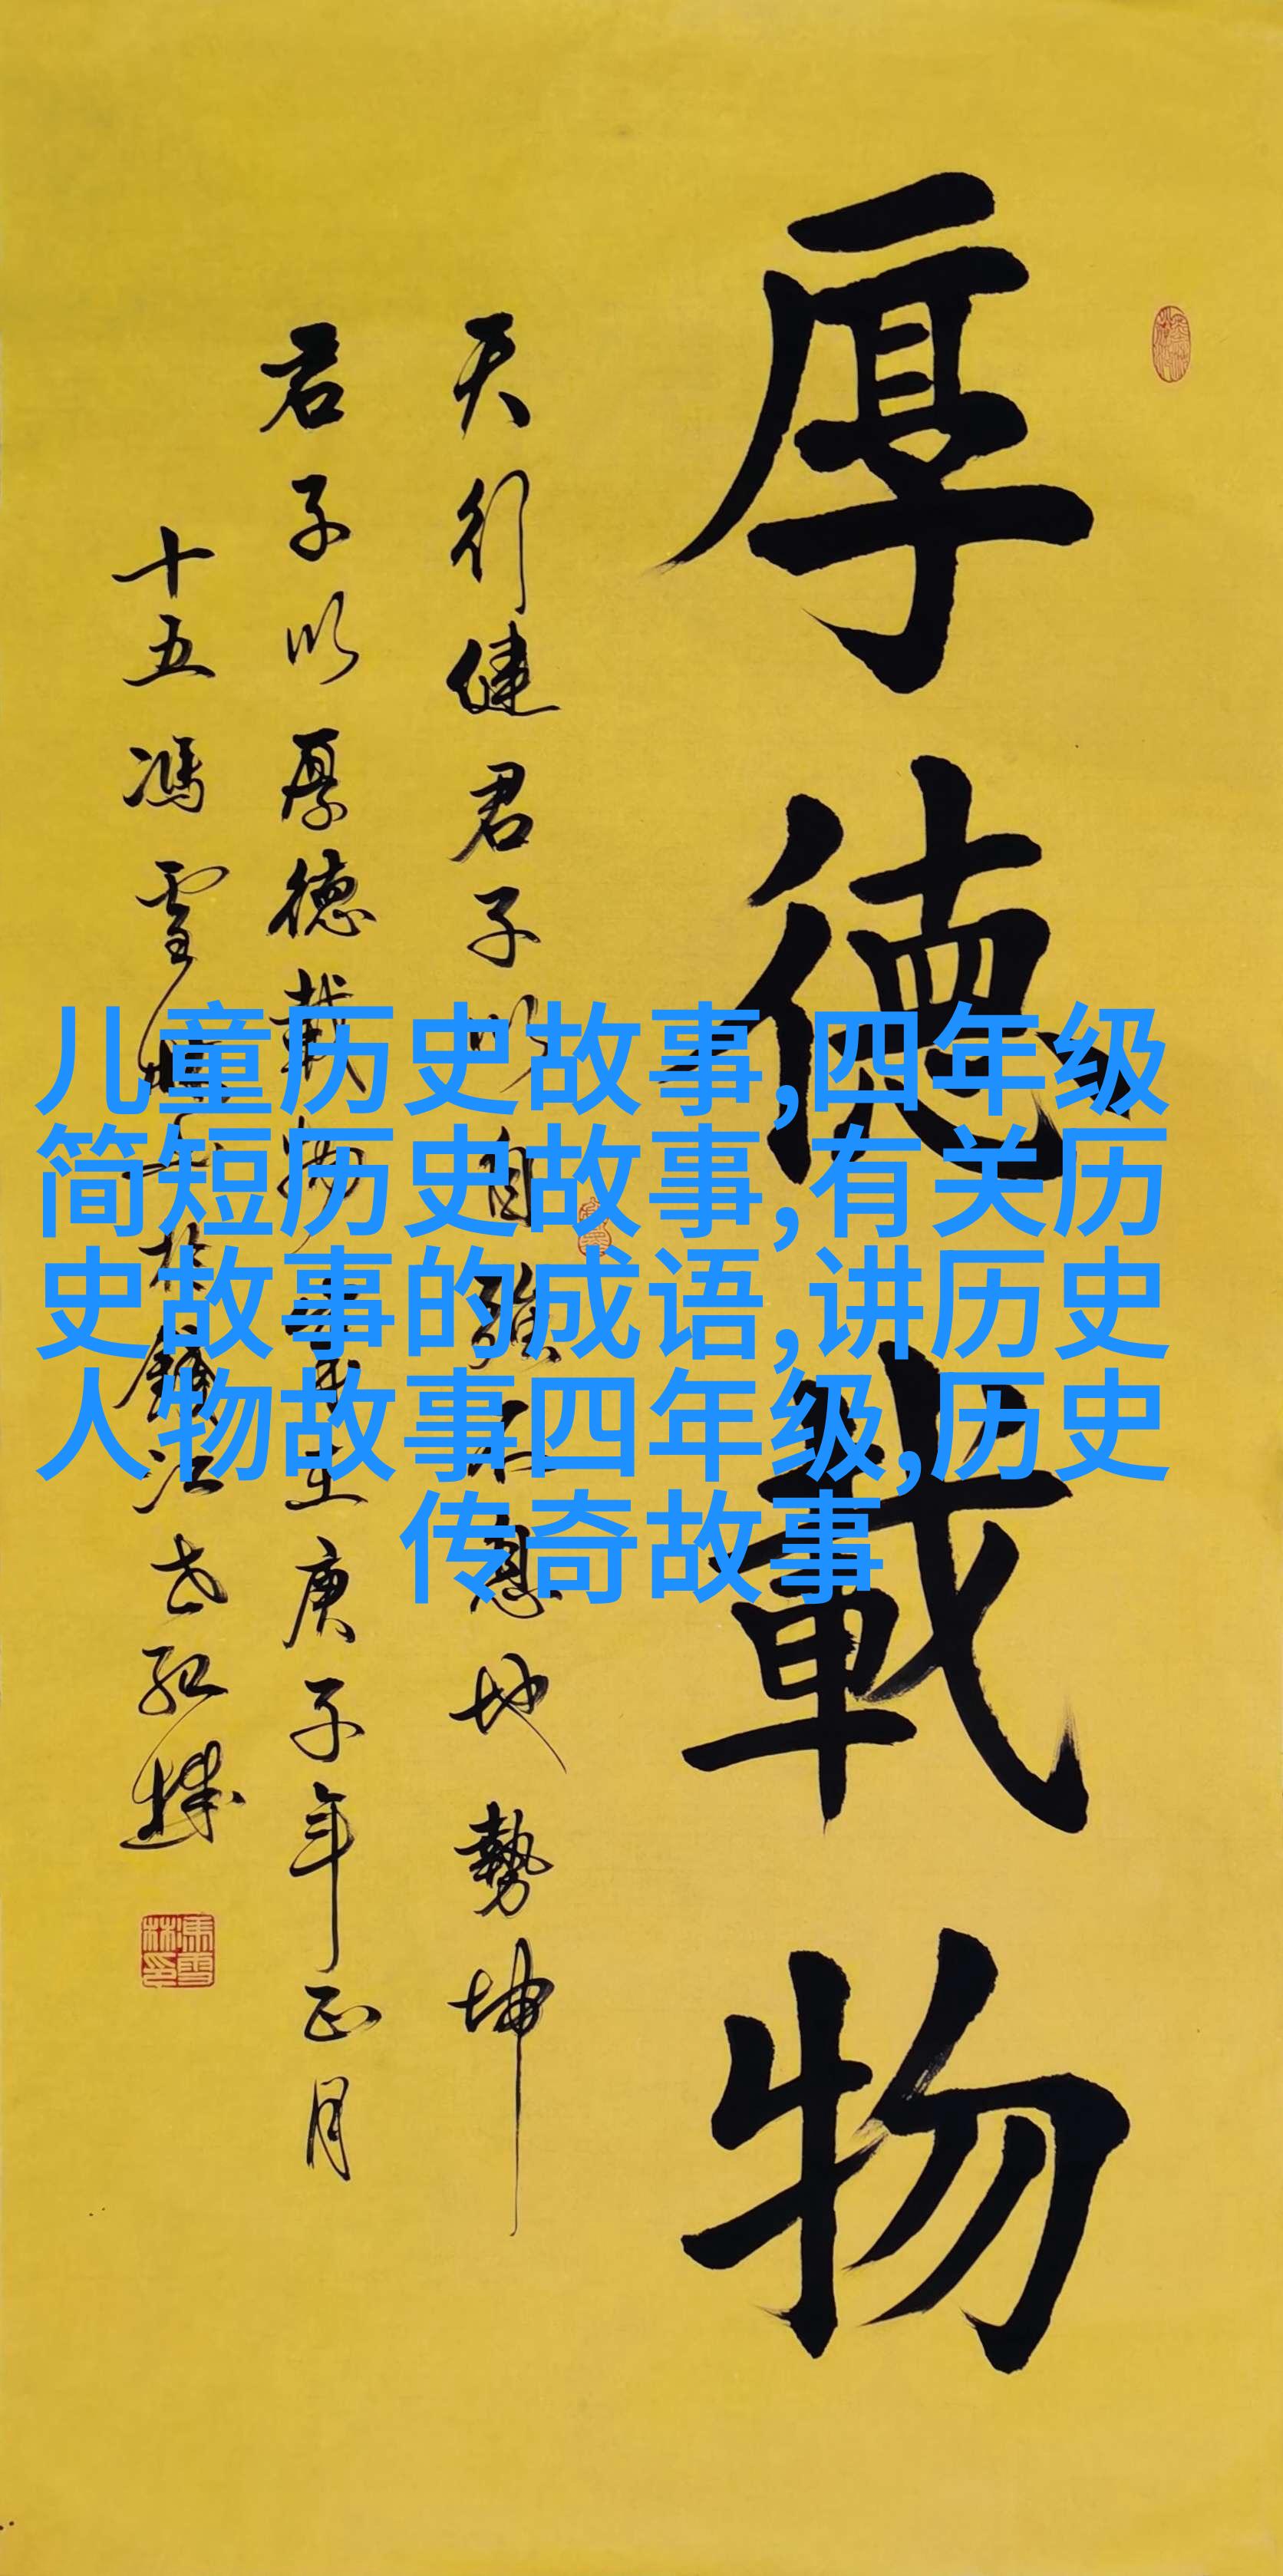 厚德載物
天行健君子以自強不息地勢坤
君子以厚德載物庚子年正月
十五馮雪林
馮雪林印
儿童历史故事,四年级
简短历史故事,有关历
史故事的成语,讲历史
人物故事四年级,历史
传奇故事